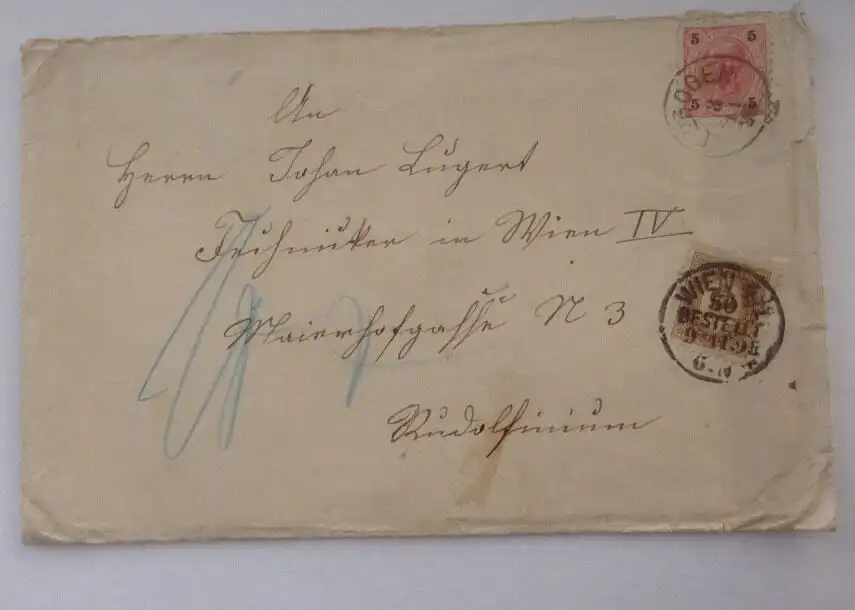 5 5
5 5
An
Herrn Johan Lugert
Techniker in Wien IV
Maierhofgasse N 3
Rudolfinium
WIEN
50
BESTELLT
9 11 95
6